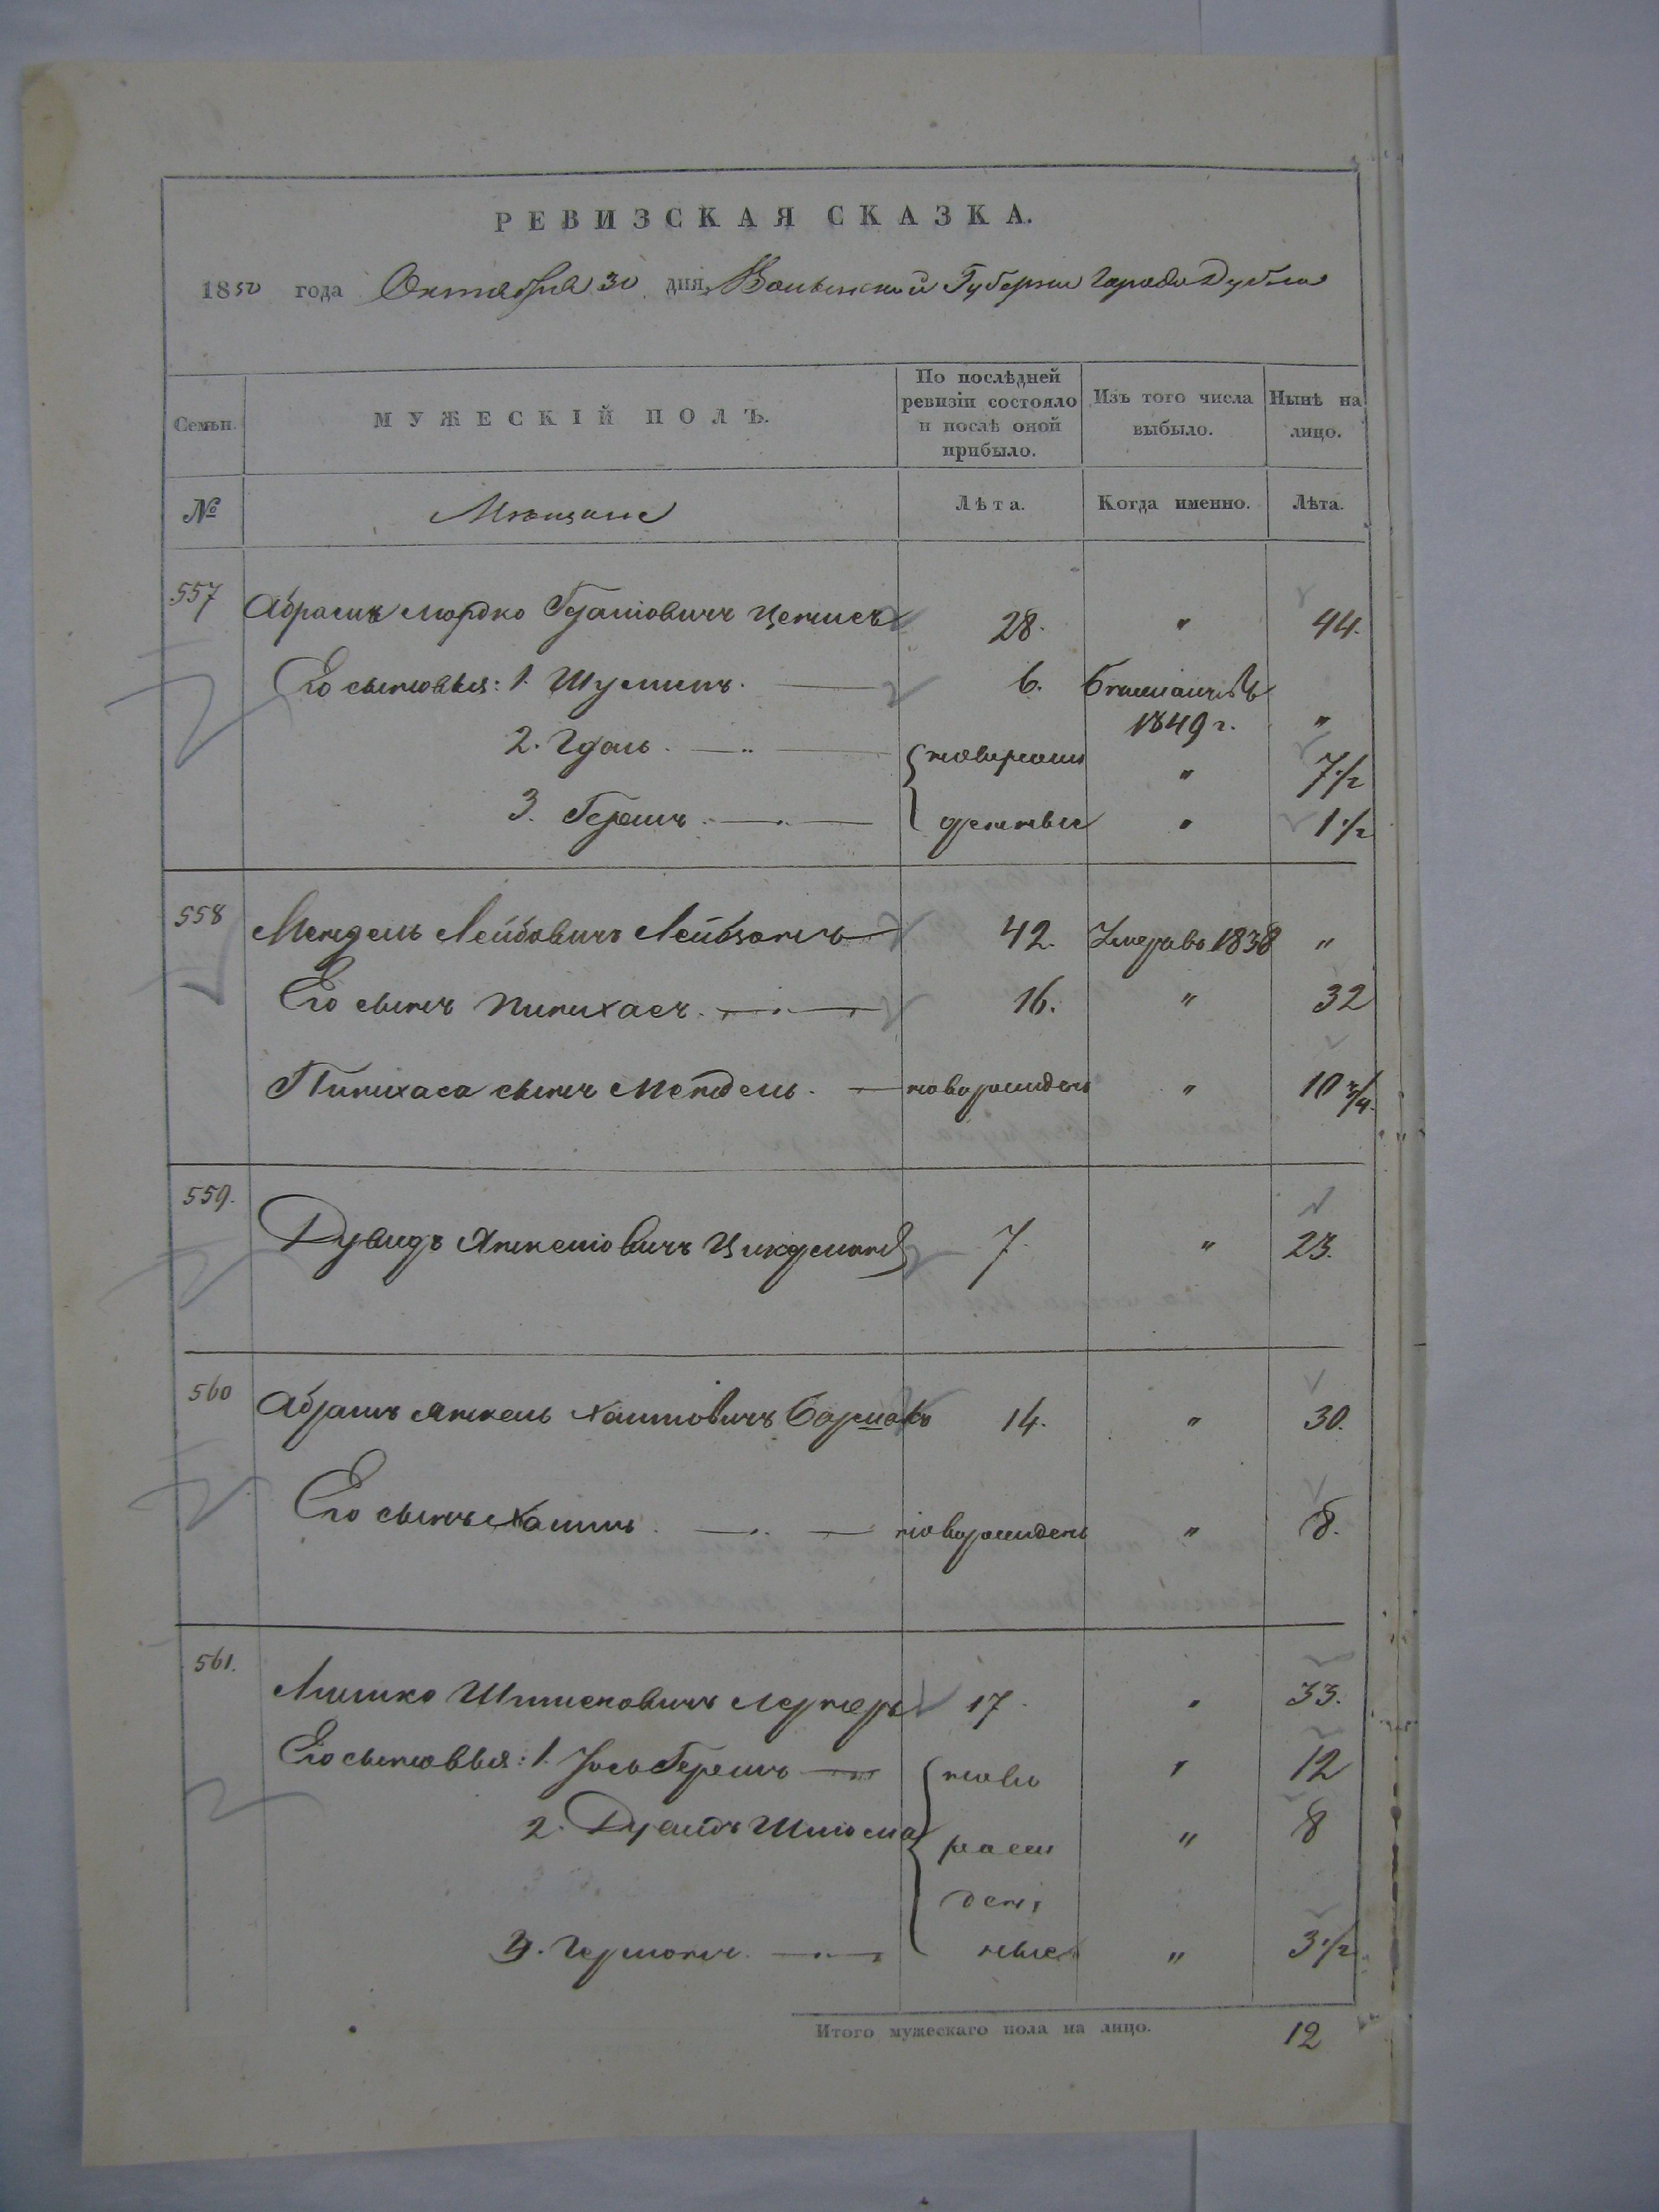 РЕВИЗСКАЯ СКАЗКА.
1850 года Октября 30 дня, Волынской Губерни Города Дубна
Семьи. МУЖЕСКІЙ ПОЛЪ. По послѣдней ревизіи состояло и послѣ оной прибыло. Изъ того числа выбыло. Нынѣ на лицо.
№ Мѣщане Лѣта. Когда именно. Лѣта.
557 Абрамъ Мордко Гдаліовичъ 28. " 44.
Его сыновья: 1. Шулимъ. 6. 1849 г. "
2. Гдаль. новорож " 7 1/2
3. Гершъ. денные " 1 1/2
558 Мендель Лейбовичъ Лейбзонъ 42. Умеръ въ 1838 "
Его сынъ Пинихасъ. 16. " 32
Пинихаса сынъ Мендель. новорожденъ " 10 3/4.
559. Дувидъ Янкеліовичъ 7 " 23.
560 Абрамъ Янкель Хаимовичъ Бармакъ 14. " 30.
Его сынъ Хаимъ. новорожденъ " 8.
561. Лернеръ 17 " 33.
Его сыновья: 1. Іось Гершъ ново " 12
2. Дувидъ Шліома рож " 8
ден,
3. Германъ. ные " 3 1/2
Итого мужескаго пола на лицо. 12